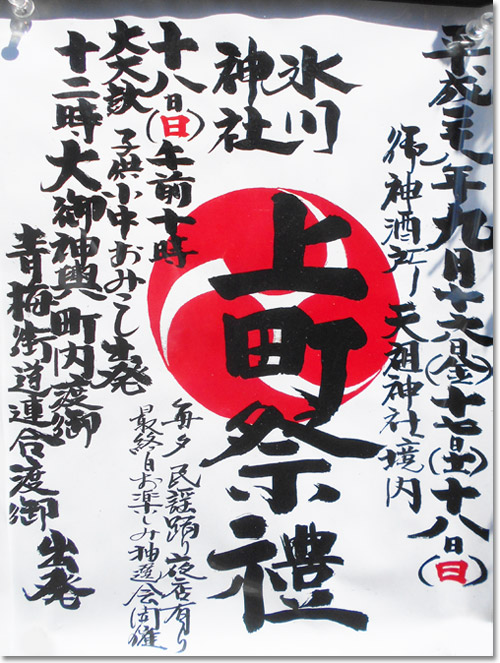 平成二三年九月十六日(金)十七日(土)十八日(日)
御神酒所 天祖神社境内
氷川
神社
上町祭禮
毎夕 民謡踊り夜店有り
最終日お楽しみ抽選会開催
十八日(日)午前十時
大太鼓 子供 小中おみこし出発
十二時 大御神輿町内渡御
青梅街道連合渡御 出発